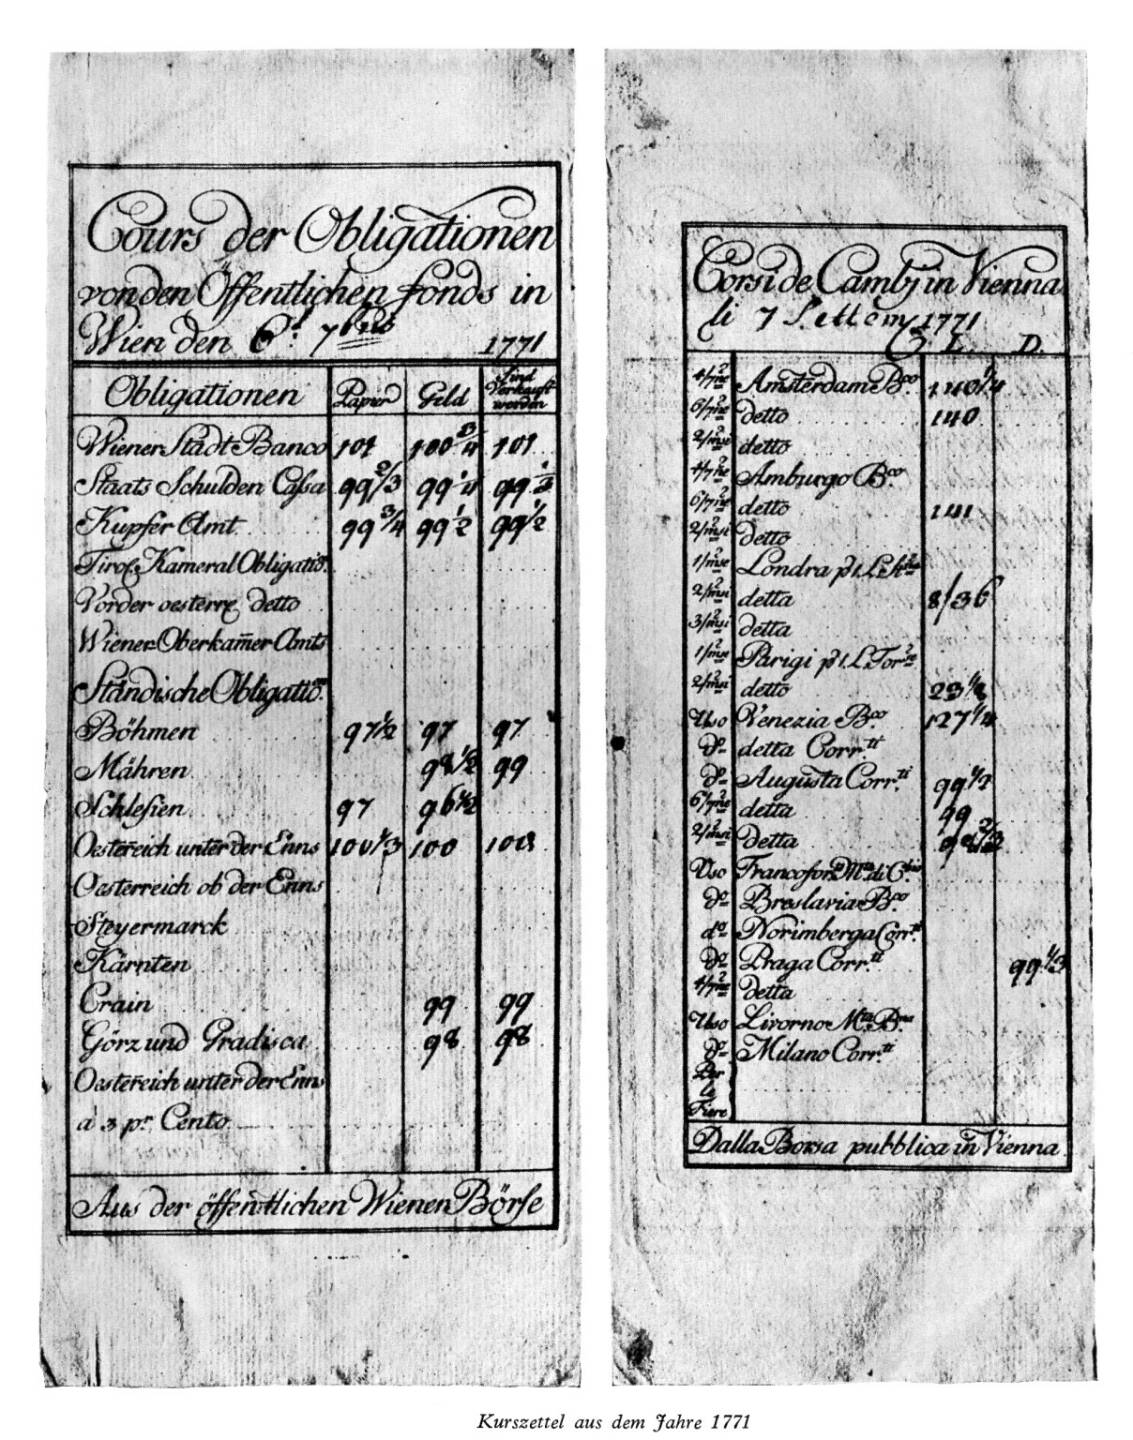 Cours der Obligationen
von den Öffentlichen fonds in
Wien den 6t 7bris 1771
Obligationen Papier Geld Sind Verkauft worden
Wiener Stadt Banco 101 100 3/4 101
Staats Schulden Cassa 99 2/3 99 1/4 99 1/2
Kupfer Amt 99 3/4 99 1/2 99 1/2
Tirol. Kameral Obligatio.
Vorder oesterre. detto
Wiener Oberkam̄er Amts
Ständische Obligatio.
Böhmen 97 1/2 97 97
Mähren 98 1/2 99
Schlesien 97 96 1/2
Oestereich unter der Enns 100 1/3 100 100
Oesterreich ob der Enns
Steyermarck
Kärnten
Crain 99 99
Görz und Gradisca 98 98
Oestereich unter der Enns
à 3 pr. Cento
Aus der öffentlichen Wiener Börse
Corsi de Cambj in Vienna
li 7 Settem 1771
L. D.
4/7ne Amsterdam Bco 140 1/4
6/7ne detto 140
2/msi detto
4/7ne Amburgo Bco
6/7ne detto 141
2/msi detto
1/mse Londra p 1. L. Stna
2/msi detta 8/36
3/msi detta
1/mse Parigi p 1. L. Torne
2/msi detto 23
Uso Venezia Bco 127 1/4
do detta Corrti
do Augusta Corrti 99 1/2
6/7ne detta 99
2/msi Detta
Uso Francofor
do Breslavia Bco
do Norimberga Corrti
do Praga Corrti 99 1/3
4/7ne detta
Uso Livorno
do Milano Corrti
Per
le
Fiere
Dalla Borsa pubblica in Vienna
Kurszettel aus dem Jahre 1771